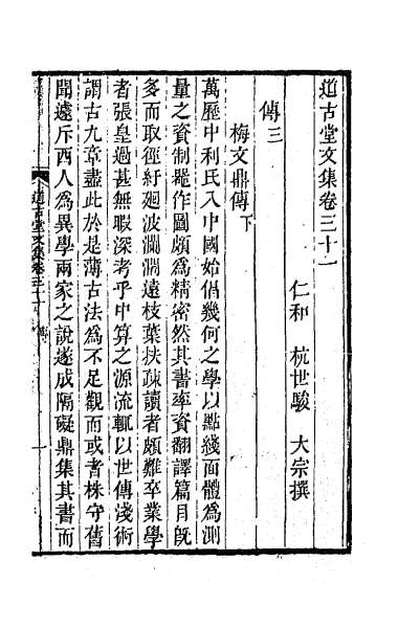 道古堂文集卷三十一
仁和　杭世駿　大宗撰
傳三
梅文鼎傳下
萬歷中利氏入中國始倡幾何之學以點綫面體為測
量之資制器作圖頗為精密然其書率資翻譯篇目既
多而取徑紆廻波瀾濶遠枝葉扶疎讀者頗難卒業學
者張皇過甚無暇深考乎中算之源流輒以世傳淺術
謂古九章盡此於是薄古法為不足觀而或者株守舊
聞遽斥西人為異學兩家之說遂成隔礙鼎集其書而
道古堂文集卷三十一